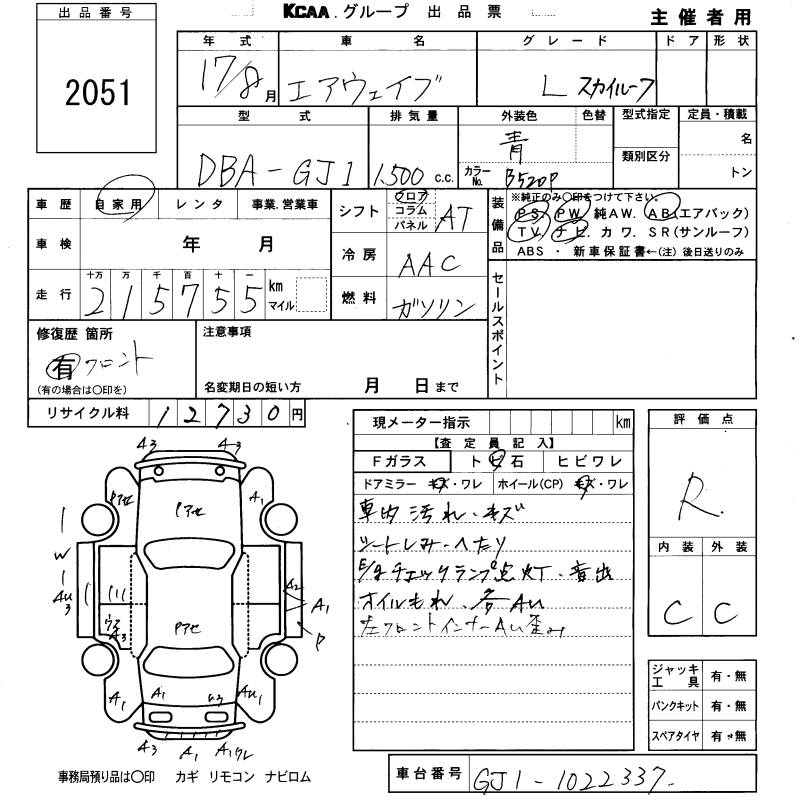 出品番号
2051
KCAA.グループ 出品票
主催者用
年式 車名 グレード ドア 形状
17/8月 エアウェイブ L スカイルーフ
型式 排気量 外装色 色替 型式指定 定員・積載
DBA-GJ1 1,500c.c. 青 名
カラーNo. B520P 類別区分 トン
車歴 自家用 レンタ 事業.営業車
車検 年 月
走行 十万 万 千 百 十 一 km マイル
215755
シフト フロア コラム パネル AT
冷房 AAC
燃料 ガソリン
装備品
※純正のみ○印をつけて下さい。
PS PW 純AW. AB(エアバック)
TV. ナビ. カワ. SR(サンルーフ)
ABS ・ 新車保証書←(注)後日送りのみ
セールスポイント
修復歴 箇所
有 フロント
(有の場合は○印を)
注意事項
名変期日の短い方 月 日まで
リサイクル料 12730円
現メーター指示 km
【査定員記入】
Fガラス トビ石 ヒビワレ
ドアミラー キズ・ワレ ホイール(CP) キズ・ワレ
車内汚れ・キズ
シートしみ・へたり
E/gチェックランプ点灯・音出
オイルもれ、各AU
左フロントインナーAU歪み
評価点
R
内装 外装
C C
ジャッキ工具 有・無
パンクキット 有・無
スペアタイヤ 有・無
A3 A3
Pアセ Pアセ A1
W
AU3
A2 A1
P
Pアセ
A3
A1 A1 AU1
A3 A1 A1ワレ
事務局預り品は○印 カギ リモコン ナビロム
車台番号 GJ1-1022337